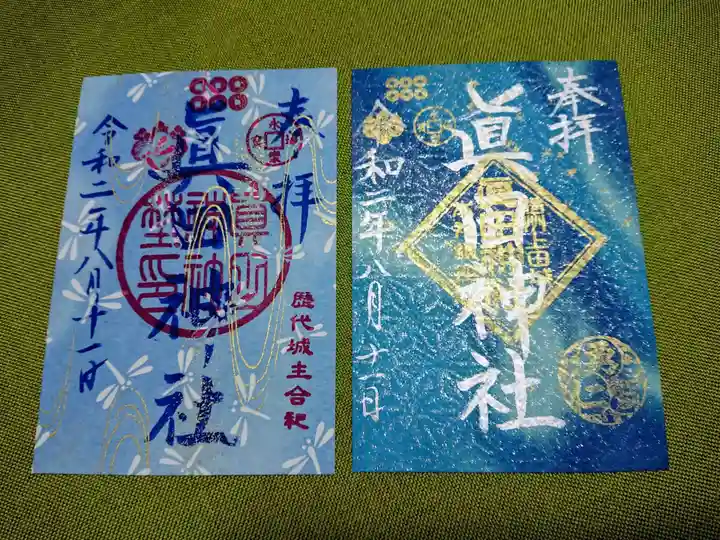 奉拝
眞田神社
令和二年八月十一日
歴代城主合祀
奉拝
眞田神社
令和二年八月十一日